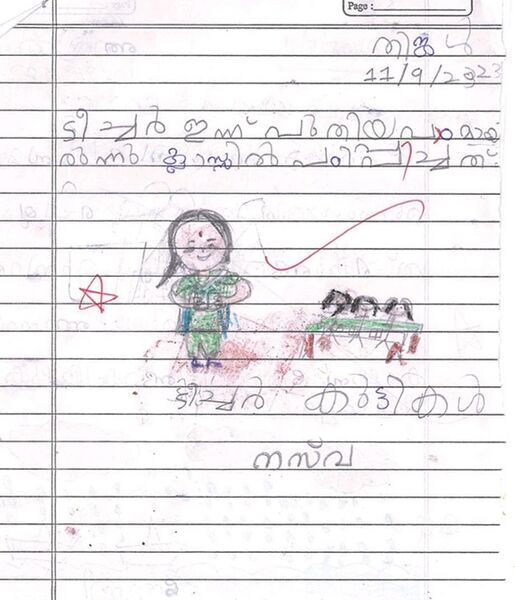 Page :
തിങ്കൾ
11/9/2023
ടീച്ചർ ഇന്ന് പുതിയ പാഠമായ
ക്ലാസ്സിൽ പഠിപ്പിച്ചത്.
ടീച്ചർ കുട്ടികൾ
നസ്‌വ